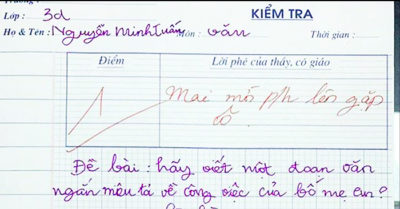 KIỂM TRA
Lớp : 3d
Họ & Tên : Nguyễn Minh Tuấn Môn : văn Thời gian :
Điểm Lời phê của thầy, cô giáo
1
Mai mố p/h lên gặp
cô
Đề bài : hãy viết một đoạn văn
ngắn miêu tả về công việc của bố mẹ em?